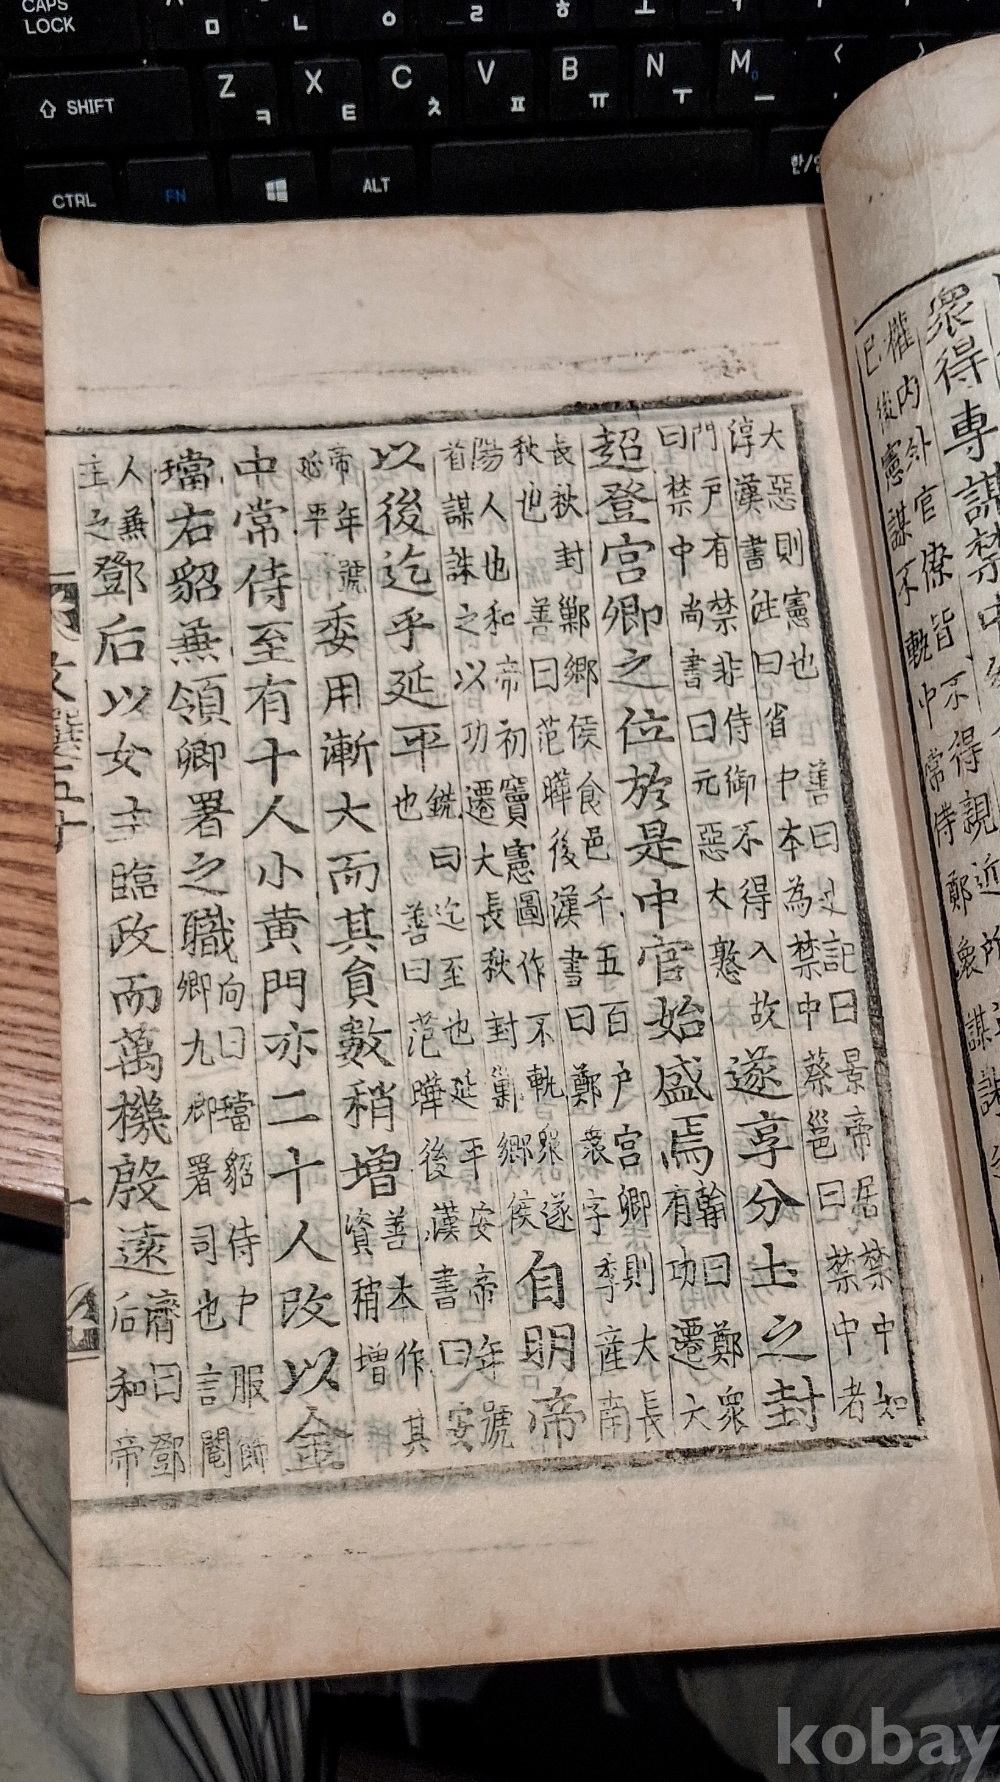 CAPS LOCK
ㅁ ㄴ ㅇ ㄹ ㅎ ㅗ
SHIFT
Z ㅋ X ㅌ C ㅊ V ㅍ B ㅠ N ㅜ M ㅡ
CTRL FN ALT 한/영
衆得專謀禁中
權内外官僚皆不得親近
已後憲謀不軌中常侍鄭衆謀
大惡則憲也善曰史記曰景帝居禁中如
淳漢書注曰省中本為禁中蔡邕曰禁中者
門户有禁非侍御不得入故
曰禁中尚書曰元惡大憝
遂享分土之封
超登宮卿之位於是中官始盛焉
翰曰鄭衆
有功遷大
長秋封鄛鄉侯食邑千五百户宮卿則大長
秋也善曰范曄後漢書曰鄭衆字季産南
陽人也和帝初竇憲圖作不軌衆遂
首謀誅之以功遷大長秋封鄛鄉侯
自明帝
以後迄乎延平
銑曰迄至也延平安帝年號
也善曰范曄後漢書曰安
帝年號
延平
委用漸大而其負數稍增
善本作其
資稍增
中常侍至有十人小黃門亦二十人改以金
璫右貂兼領卿署之職
向曰璫貂侍户服飾
卿九卿署司也言閹
人兼
主之
鄧后以女主臨政而萬機殷遠
濟曰鄧
后和帝
文選五十
十
kobay